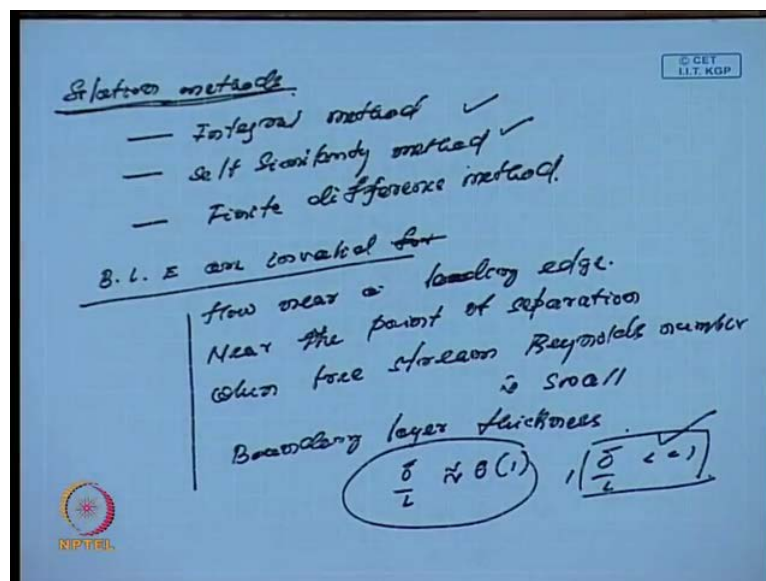 © CET
I.I.T. KGP
Solution methods.
— Integral method ✓
— Self Similarity method ✓
— Finite difference method.
B. L. E are invalid for
flow near a leading edge.
Near the point of separation
when free stream Reynolds number
is small
Boundary layer thickness.
δ/L ≈ O(1), δ/L << 1 ✓
NPTEL